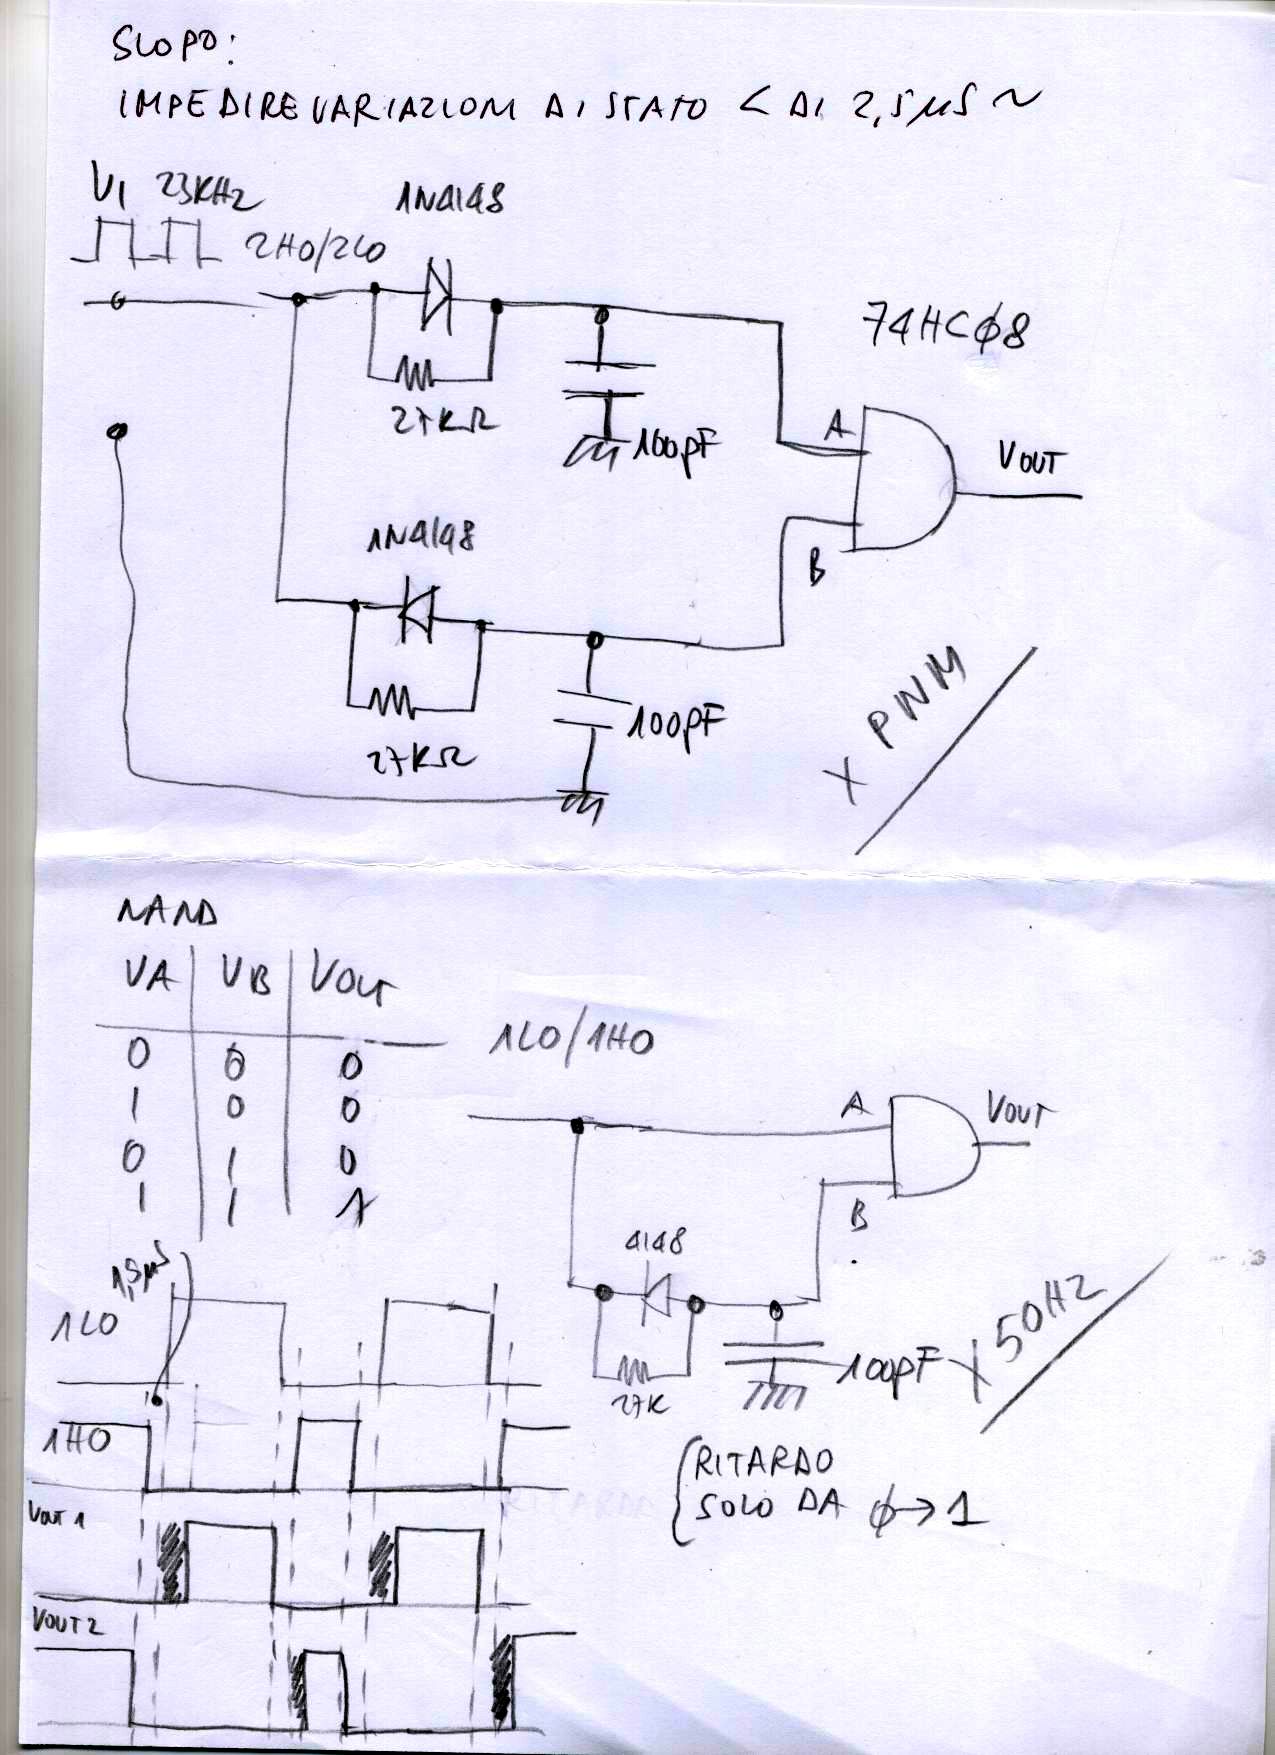 SCOPO:
IMPEDIRE VARIAZIONI DI STATO < DI 2,5µS ~
V1 23KHZ
2HO/2LO
1N4148
27KΩ
100pF
74HCØ8
A
B
VOUT
1N4148
27KΩ
100pF
X PWM
NAND
VA VB VOUT
0 0 0
1 0 0
0 1 0
1 1 1
1LO/1HO
A
B
VOUT
4148
27K
100pF
X 50HZ
RITARDO
SOLO DA Ø→1
1,5µS
1LO
1HO
VOUT 1
VOUT 2